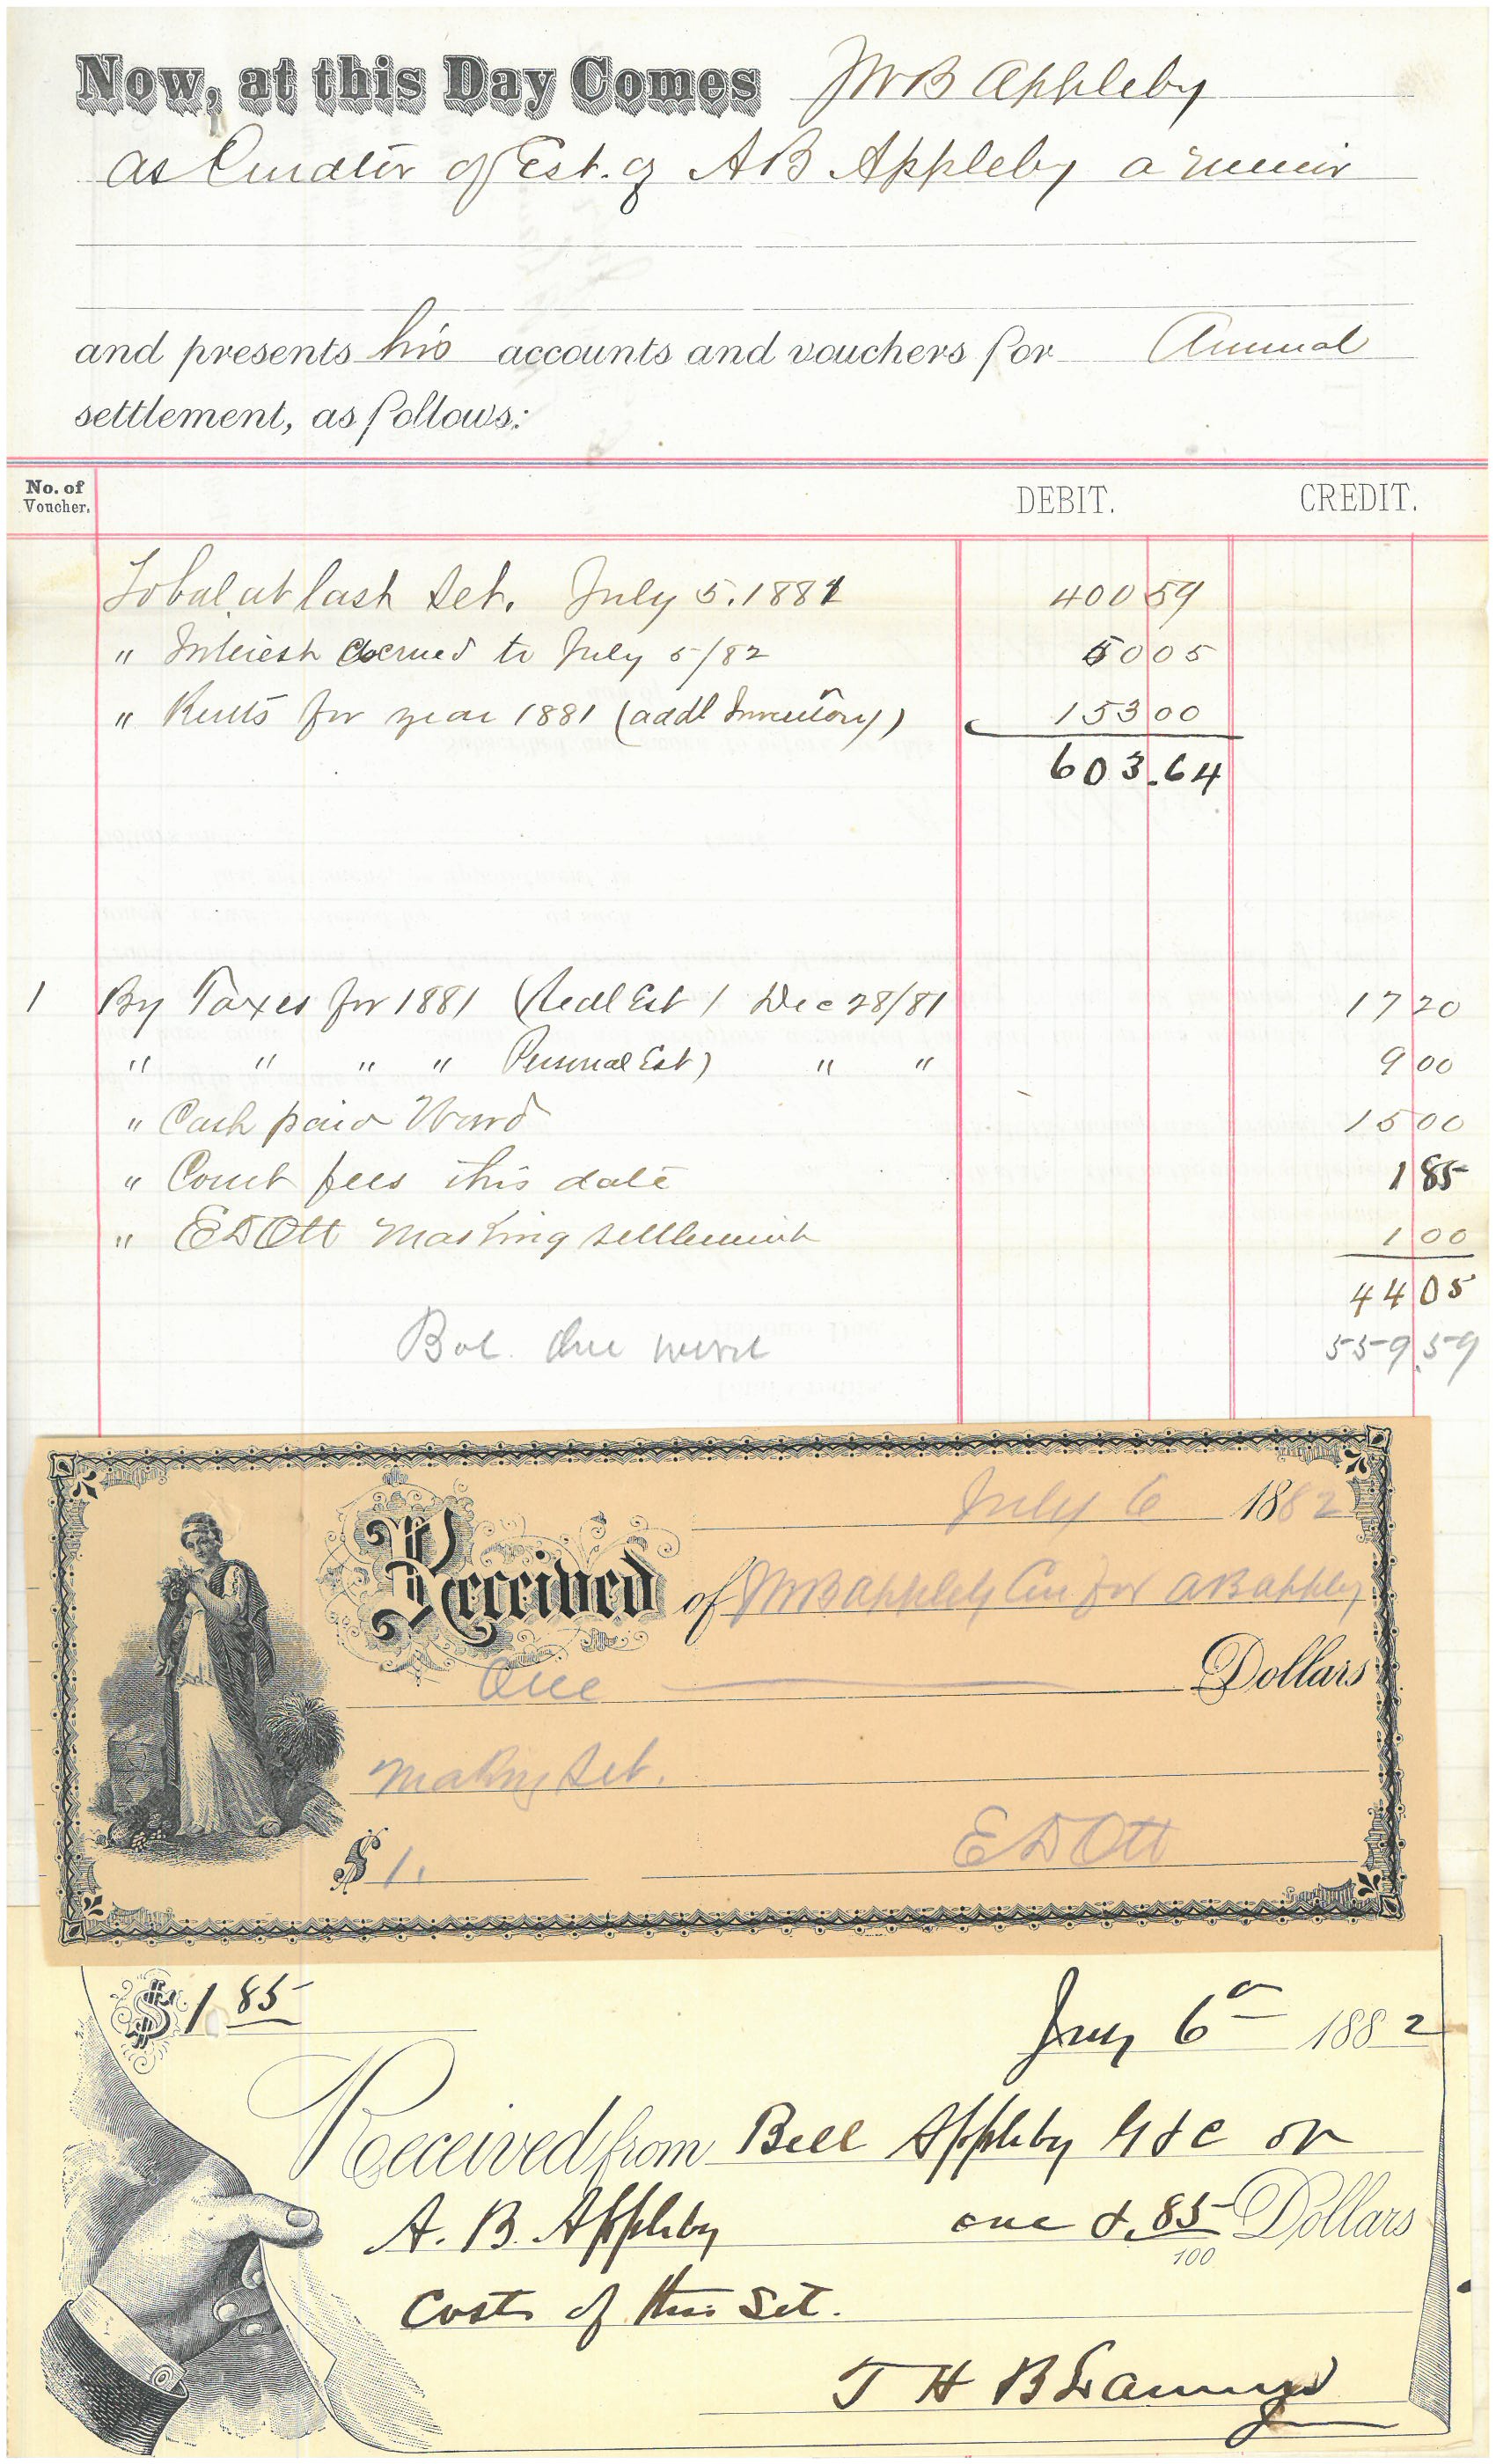 Now, at this Day Comes JWB Appleby
as Curator of Est. of AB Appleby a minor
and presents his accounts and vouchers for Annual
settlement, as follows:
No. of Voucher. DEBIT. CREDIT.
To bal. at last Set. July 5. 1881 400 59
" Interest accrued to July 5/82 50 05
" Rents for year 1881 (addl Inventory) 153 00
603.64
1 By Taxes for 1881 (Real Est) Dec 28/81 17 20
" " " " Personal Est) " " 9 00
" Cash paid Ward 15 00
" Court fees this date 1 85
" E D Ott Making settlement 1 00
44 05
Bal. due ward 559.59
July 6 1882
Received of JWB Appleby Cur for AB Appleby
One Dollars
Making Set.
$ 1. E D Ott
$ 1 85
July 6 1882
Received from Bell Appleby G & C or
A. B. Appleby one & 85/100 Dollars
Costs of this Set.
T H B